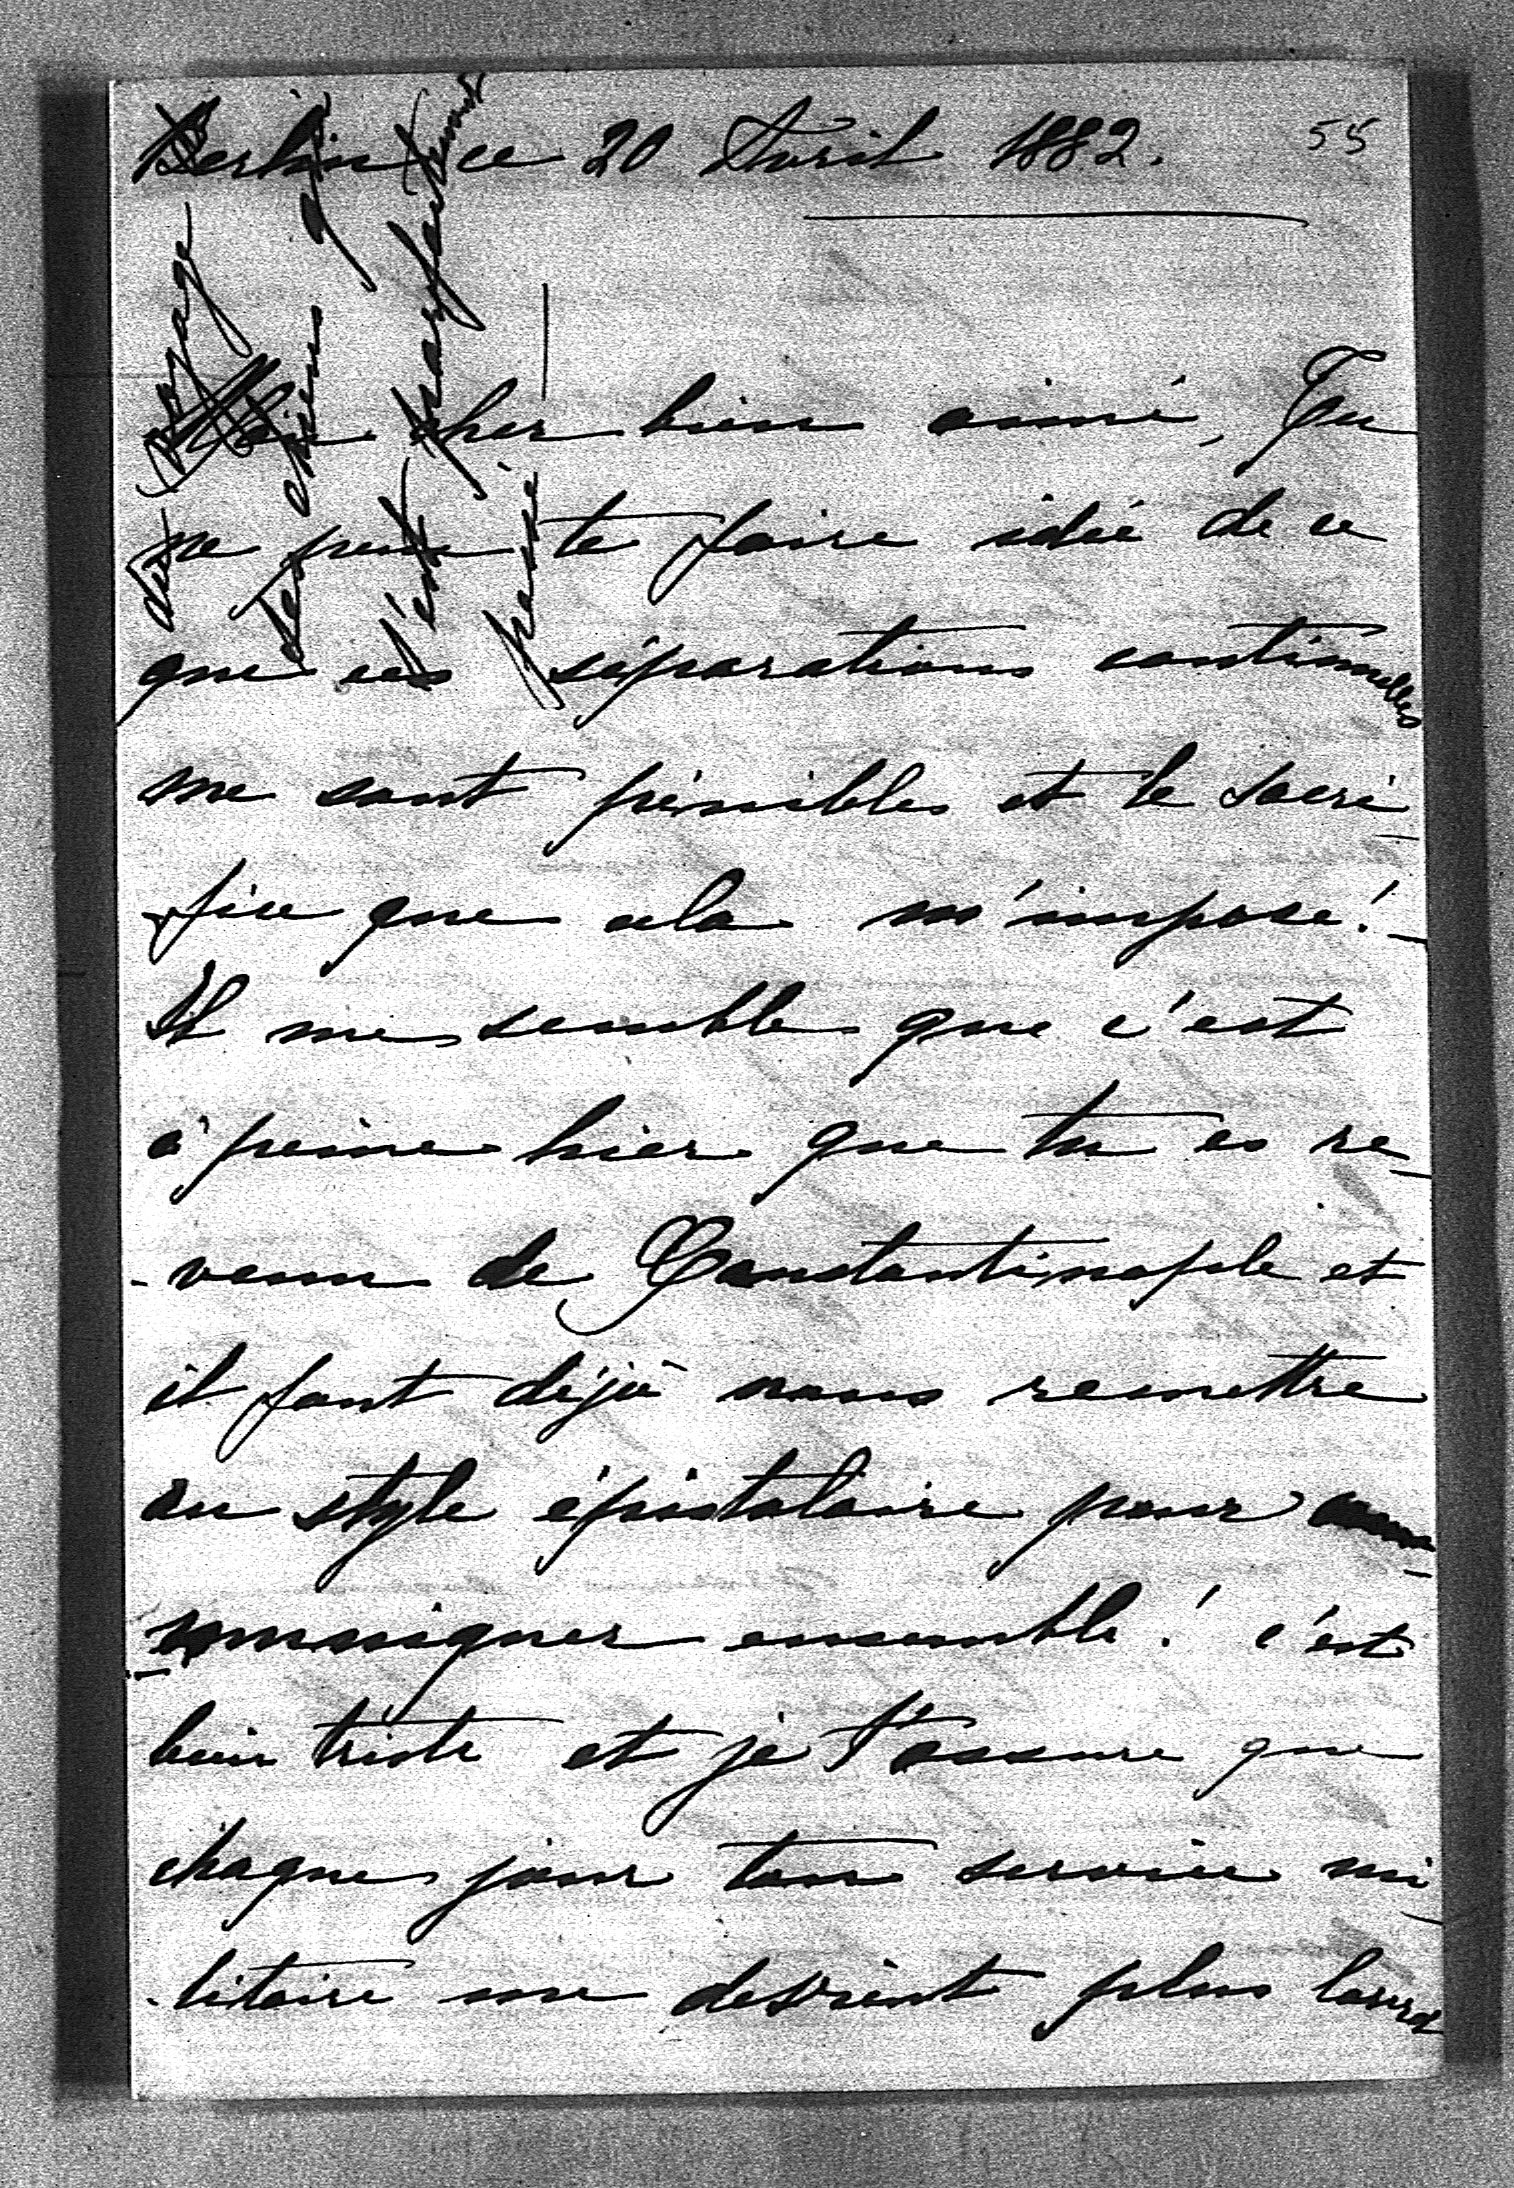 Berlin ce 20 Avril 1882.
55
Mon cher bien aimé, Tu
ne peux te faire idée de ce
que ces séparations continuelles
me sont pénibles et le sacri-
fice que cela m'impose!
Il me semble que c'est
à peine hier que tu es re-
-venu de Constantinople et
il faut déjà nous remettre
au style épistolaire pour com-
-muniquer ensemble! c'est
bien triste et je t'assure que
chaque jour ton service mi-
-litaire me devient plus lourd
du voyage
Le chien
s'est parfaitement